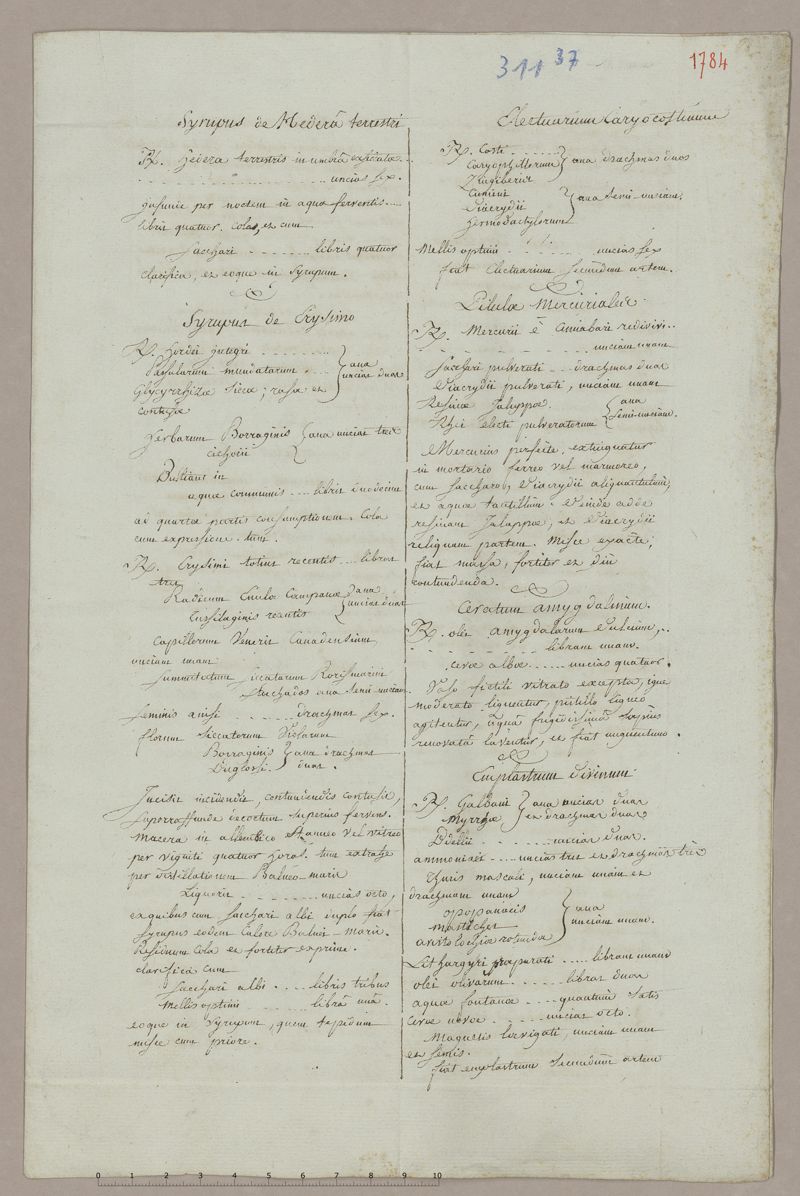 311 37
1784
Syrupus de Hederâ terrestri
Rx. hederæ terrestris in umbrâ exsiccatæ...
. . . . . . . . uncias sex.
infunde per noctem in aquæ ferventis...
libris quatuor. Cola, et cum
Sacchari . . . . . . . libris quatuor
clarifica, et coque in Syrupum.
Syrupus de Erysimo
Rx. hordei integri . . . . . . . .
Passularum mundatarum . . . } ana
uncias duas
Glycyrrhizæ siccæ; rasæ et
contusæ
herbarum Borraginis } ana uncias tres
cichorii
Bulliant in
aquæ communis .... libris duodecim
ad quartæ partis consumptionem. Cola
cum expressione. tum.
Rx. Erysimi totius recentis ... libras
tres
Radicum Enulæ Campanæ } ana
uncias duas
Tussilaginis recentis
Capillorum Veneris Canadensium
unciam unam
Summitatum siccatarum Rorismarini
Stæchados ana semi-unciam
Seminis anisi . . . . . . drachmas sex.
florum siccatorum Violarum
Borraginis } ana drachmas
Buglossi. duas.
Incisis incidendis, contundendis contusis,
superaffunde decoctum superius fervens.
Macera in alembico stanneo vel vitreo
per viginti quatuor horas. tum extrahe
per distillationem Balneo-mariæ
Liquoris . . . . . . . . uncias octo,
ex quibus cum Sacchari albi duplo fiat
Syrupus eodem calore Balnei-mariæ.
Residuum Cola et fortiter exprime.
clarifica cum
Sacchari albi . . . . libris tribus
Mellis optimi . . . . . . librâ unâ.
coque in Syrupum, quem tepidum
misce cum priore.
Electuarium Caryocostinum
Rx. Costi . . . . . .
Caryophillorum } ana drachmas duas
Zingiberis
Cumini
Diacrydii } ana semi-unciam.
hermodactylorum
Mellis optimi . . . . . . . uncias sex
fiat Electuarium secundum artem.
Pilulæ Mercuriales
Rx. Mercurii è Cinnabari redivivi..
. . . . . . . . unciam unam
Sacchari pulverati . . . drachmas duas
Diacrydii pulverati, unciam unam
Resinæ Jalappæ. } ana
semi-unciam.
Rhei electi pulveratorum
Mercurius perfecte, extinguatur
in mortario ferreo vel marmoreo,
cum Saccharo, Diacrydii aliquantulum,
et aquæ tantillum. Deinde adde
resinam Jalappæ, et Diacrydii
reliquam partem. Misce exacte,
fiat massa, fortiter et diu
contundenda.
Ceratum amygdalinum.
Rx. olei amygdalarum dulcium, ..
. . . . . . . . libram unam.
ceræ albæ . . . . . . uncias quatuor.
Vaso fictili vitrato excepta, igne
moderato liquentur, pistillo ligneo
agitentur, aquâ frigidissimâ sæpius
renovatâ laventur, et fiat unguentum.
Emplastrum divinum
Rx. Galbani } ana uncias duas
Myrrhæ et drachmas duas
Bdellii . . . . . . . uncias duas.
ammoniaci . . . . uncias tres et drachmas tres
Thuris masculi, unciam unam et
drachmam unam
opopanacis } ana
mastiches unciam unam.
aristolochiæ rotundæ
Lithargyri præparati . . . . . libram unam
olei olivarum . . . . . . libras duas
aquæ fontanæ . . . . quantum satis
Ceræ novæ . . . . . . uncias octo.
Magnetis lævigati, unciam unam
et semis.
fiat emplastrum secundum artem
0 1 2 3 4 5 6 7 8 9 10